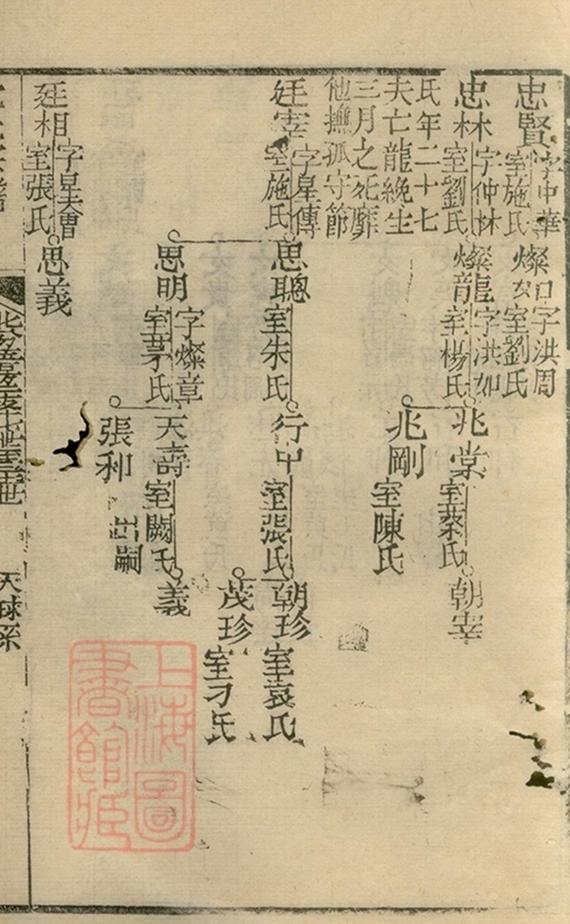 忠賢 字中華 室施氏
燦 字洪周 室劉氏
忠林 字仲林 室劉氏
燦龍 字洪如 室楊氏
兆棠 室蔡氏
朝宰
兆剛 室陳氏
氏年二十七
夫亡龍絻生
三月之死靡
他撫孤守節
廷宰 字星傳 室施氏
思聰 室朱氏
行中 室張氏
朝珍 室袁氏
茂珍 室刁氏
思明 字燦章 室茅氏
天壽 室闕氏
義
張利 出嗣
廷相 字星 室張氏
思義
天球系
上海圖書館藏